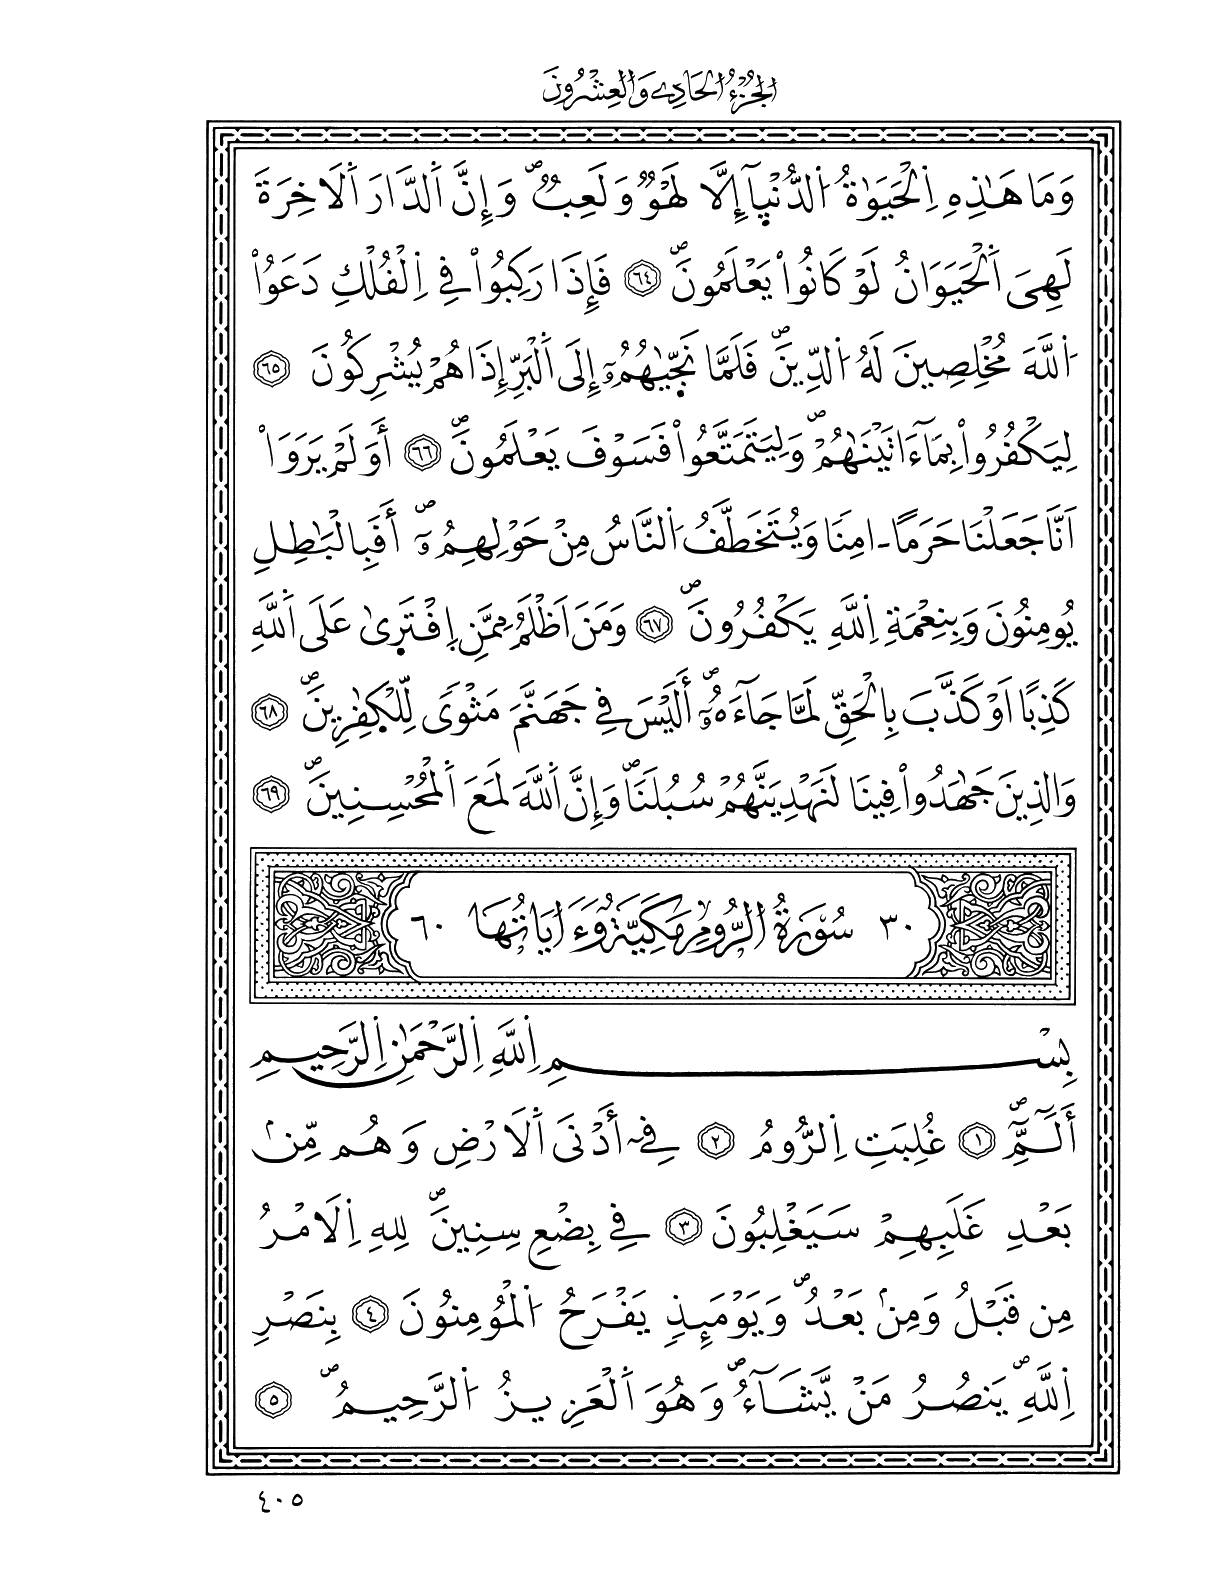 الجزء الحادي والعشرون
وَمَا هَٰذِهِ اِ۬لْحَيَوٰةُ اُ۬لدُّنْي۪آ إِلَّا لَهْوٞ وَلَعِبٞۖ وَإِنَّ اَ۬لدَّارَ اَ۬لَاخِرَةَ
لَهِيَ اَ۬لْحَيَوَانُ لَوْ كَانُواْ يَعْلَمُونَۖ ٦٤ فَإِذَا رَكِبُواْ فِي اِ۬لْفُلْكِ دَعَوُاْ
اُ۬للَّهَ مُخْلِصِينَ لَهُ اُ۬لدِّينَۖ فَلَمَّا نَجّ۪يٰهُمُۥٓ إِلَى اَ۬لْبَرِّ إِذَا هُمْ يُشْرِكُونَ ٦٥
لِيَكْفُرُواْ بِمَآ ءَاتَيْنَٰهُمْۖ وَلِيَتَمَتَّعُواْ فَسَوْفَ يَعْلَمُونَۖ ٦٦ أَوَلَمْ يَرَوَاْ
اَنَّا جَعَلْنَا حَرَماً ـ اٰمِنَا وَيُتَخَطَّفُ اُ۬لنَّاسُ مِنْ حَوْلِهِمُۥٓۖ أَفَبِالْبَٰطِلِ
يُومِنُونَ وَبِنِعْمَةِ اِ۬للَّهِ يَكْفُرُونَۖ ٦٧ وَمَنَ اَظْلَمُ مِمَّنِ اِ۪فْتَر۪يٰ عَلَى اَ۬للَّهِ
كَذِباً اَوْ كَذَّبَ بِالْحَقِّ لَمَّا جَآءَهُۥٓۖ أَلَيْسَ فِي جَهَنَّمَ مَثْوىٗ لِّلْكٰ۪فِرِينَۖ ٦٨
وَالذِينَ جَٰهَدُواْ فِينَا لَنَهْدِيَنَّهُمْ سُبُلَنَاۖ وَإِنَّ اَ۬للَّهَ لَمَعَ اَ۬لْمُحْسِنِينَۖ ٦٩
٣٠ سُورَةُ الرُّومِ مَكِّيَّةٌ وَءَايَاتُهَا ٦٠
بِسْمِ اِ۬للَّهِ اِ۬لرَّحْمَٰنِ اِ۬لرَّحِيمِ
أَلَٓمِّٓۖ ١ غُلِبَتِ اِ۬لرُّومُ ٢ فِےٓ أَدْنَى اَ۬لَارْضِ وَهُم مِّنۢ
بَعْدِ غَلَبِهِمْ سَيَغْلِبُونَ ٣ فِي بِضْعِ سِنِينَۖ لِلهِ اِ۬لَامْرُ
مِن قَبْلُ وَمِنۢ بَعْدُۖ وَيَوْمَئِذٖ يَفْرَحُ اُ۬لْمُومِنُونَ ٤ بِنَصْرِ
اِ۬للَّهِۖ يَنصُرُ مَنْ يَّشَآءُۖ وَهُوَ اَ۬لْعَزِيزُ اُ۬لرَّحِيمُۖ ٥
٤٠٥